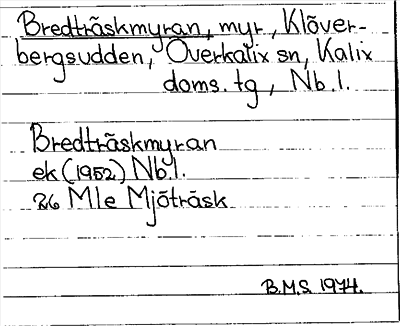 Bredträskmyran, myr, Klöver-
bergsudden, Överkalix sn, Kalix
doms. tg, Nb.l.
Bredträskmyran
ek (1952) Nb.l.
26 Mle Mjöträsk
B.M.S. 1974.